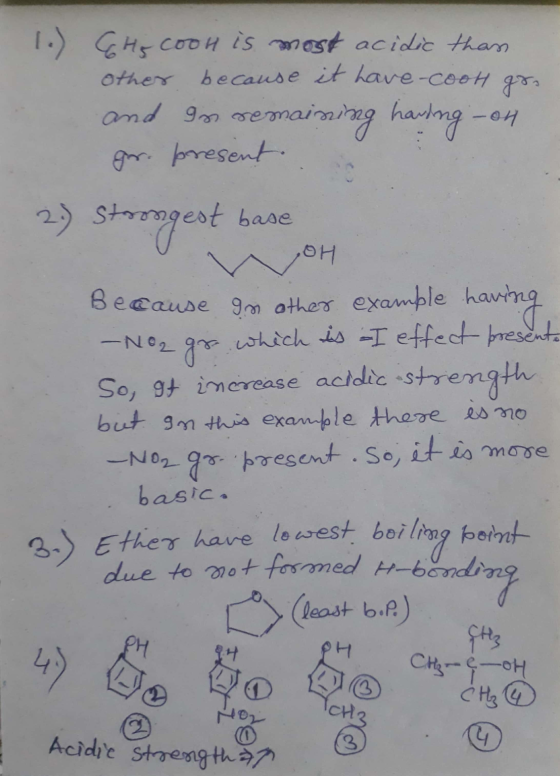 1.) C6H5COOH is most acidic than
other because it have -COOH gr.
and In remaining having -OH
gr. present.
2.) Strongest base
OH
Because In other example having
-NO2 gr which is -I effect present.
So, It increase acidic strength
but In this example there is no
-NO2 gr. present. So, it is more
basic.
3.) Ether have lowest boiling point
due to not formed H-bonding
O (least b.P.)
4.) OH OH OH CH3
CH3-C-OH
2 1 3 CH3 4
NO2 CH3
2 1 3 4
Acidic strength ⇒↗